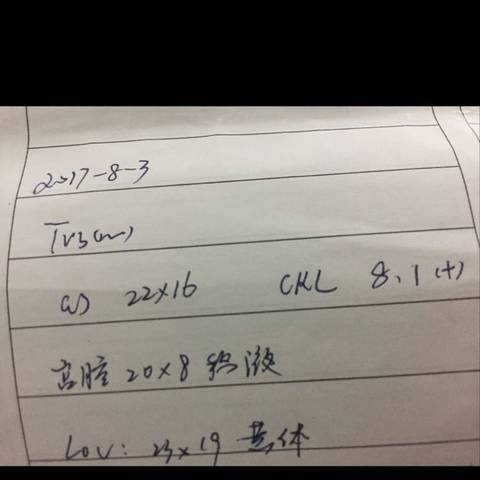 2017-8-3
TVS(mm)
GS 22×16 CRL 8.1 (+)
宫腔 20×8 积液
LOV: 23×19 黄体